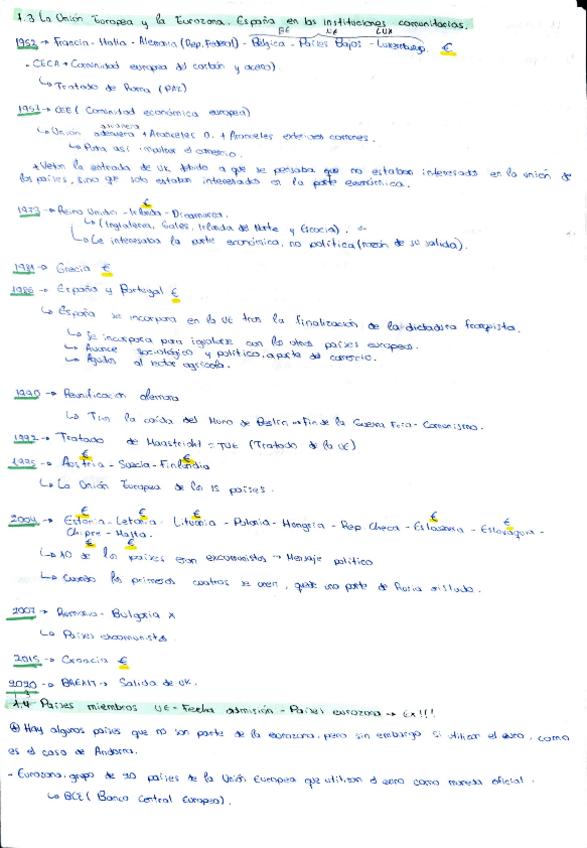 1.3 La Unión Europea y la Eurozona. España en las instituciones comunitarias.
BE NE LUX
1952 → Francia - Italia - Alemania (Rep. Federal) - Bélgica - Países Bajos - Luxemburgo. €
- CECA → Comunidad europea del carbón y acero)
↳ Tratado de Roma (PAZ)
1957 → CEE (Comunidad económica europea)
↳ Unión aduanera + Aranceles 0. + Aranceles exteriores comunes.
↳ Para así impulsar el comercio.
+ Vetan la entrada de UK debido a que se pensaba que no estaban interesados en la unión de
los países, sino que solo estaban interesados en la parte económica.
1973 → Reino Unido - Irlanda - Dinamarca.
€
↳ (Inglaterra, Gales, Irlanda del Norte y Escocia).
↳ Le interesaba la parte económica, no política (razón de su salida).
1981 → Grecia €
1986 → España y Portugal €
↳ España se incorpora en la UE tras la finalización de la dictadura franquista.
↳ Se incorpora para igualarse con los otros países europeos.
↳ Avance sociológico y político, aparte del comercio.
↳ Ayudas al sector agrícola.
1990 → Reunificación alemana
↳ Tras la caída del Muro de Berlín → Fin de la Guerra Fría - Comunismo.
1992 → Tratado de Maastricht = TUE (Tratado de la UE)
1995 → Austria - Suecia - Finlandia
€ €
↳ La Unión Europea de los 15 países.
2004 → Estonia - Letonia - Lituania - Polonia - Hungría - Rep. Checa - Eslovenia -
€ € € € €
Chipre - Malta.
€ €
↳ 10 de los países eran excomunistas → Mensaje político
↳ Cuando los primeros cuatros se unen, queda una parte de Rusia aislada.
2007 → Rumanía - Bulgaria x
↳ Países excomunistas
→ Croacia €
2020 → BREXIT → Salida de UK.
1.4 Países miembros UE - Fecha admisión - Países eurozona → Ex!!!
Hay algunos países que no son parte de la eurozona, pero sin embargo si utilizan el euro, como
es el caso de Andorra.
- Eurozona: grupo de 20 países de la Unión Europea que utilizan el euro como moneda oficial.
↳ BCE (Banco Central Europeo).